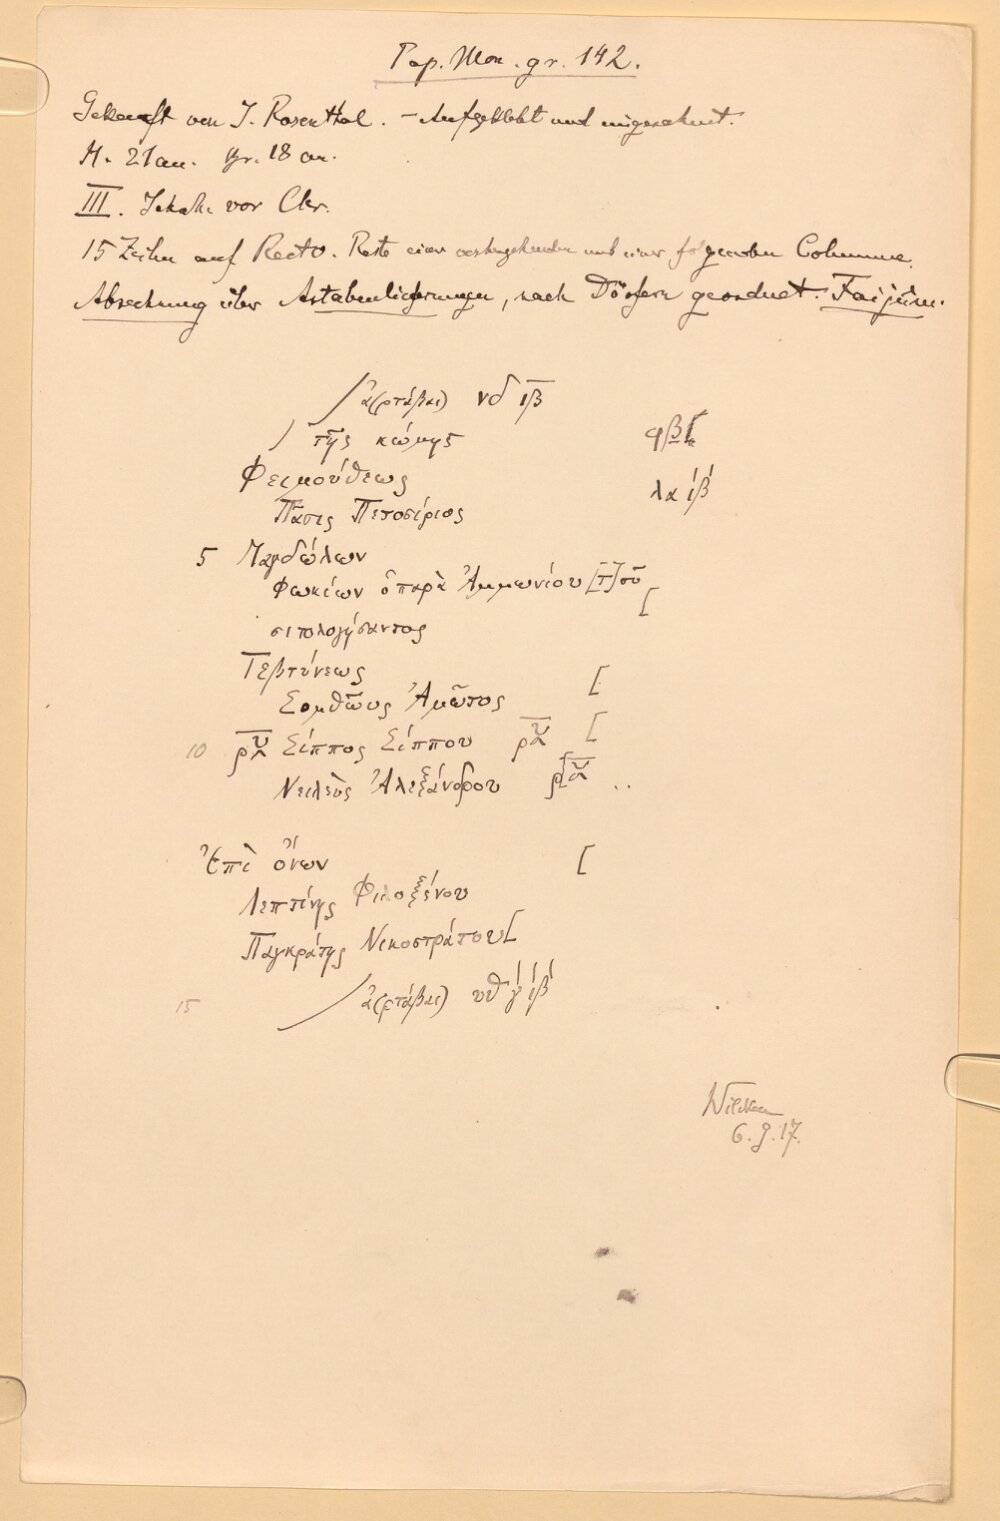 Pap. Mon. gr. 142.
Gekauft von J. Rosenthal. – Aufgeklebt und eingerahmt.
H. 21 cm. Br. 18 cm.
III. Jahrh. vor Chr.
15 Zeilen auf Recto. Reste einer vorhergehenden und einer folgenden Columne.
Abrechnung über Artabenlieferungen, nach Dörfern geordnet. Faijûm.
/ ἀ(ρτάβαι) νδ ιβ
/ τῆς κώμης ϙβ
Φειμούθεως λα ιβ
Πᾶσις Πετοσίριος
5 Μαγδώλων
Φωκίων ὁ παρὰ Ἀμμωνίου [τ]οῦ
σιτολογήσαντος [
Τεβτύνεως
Σομθῶυς Ἀμῶτος [
10 Σίππος Σίππου [
Νειλεὺς Ἀλεξάνδρου ..
Ἐπὶ ὄνων [
Λεπτίνης Φιλοξένου
Παγκράτης Νικοστράτου [
15 / ἀ(ρτάβαι) υθ γ́ ιβ́
Wilcken
6.9.17.